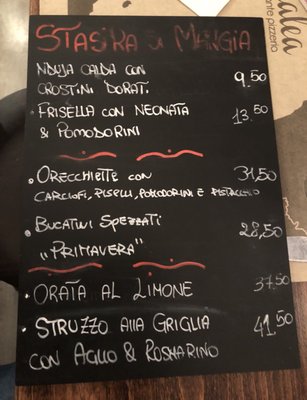 STASERA SI MANGIA
NDUJA CALDA CON
CROSTINI DORATI 9.50
FRISELLA CON NEONATA 13.50
& POMODORINI
ORECCHIETTE CON 31,50
CARCIOFI, PISELLI, POMODORINI E PISTACCHIO
BUCATINI SPEZZATI 28,50
"PRIMAVERA"
ORATA AL LIMONE 37,50
STRUZZO ALLA GRIGLIA 41.50
CON AGLIO & ROSMARINO
alea
ante pizzeria